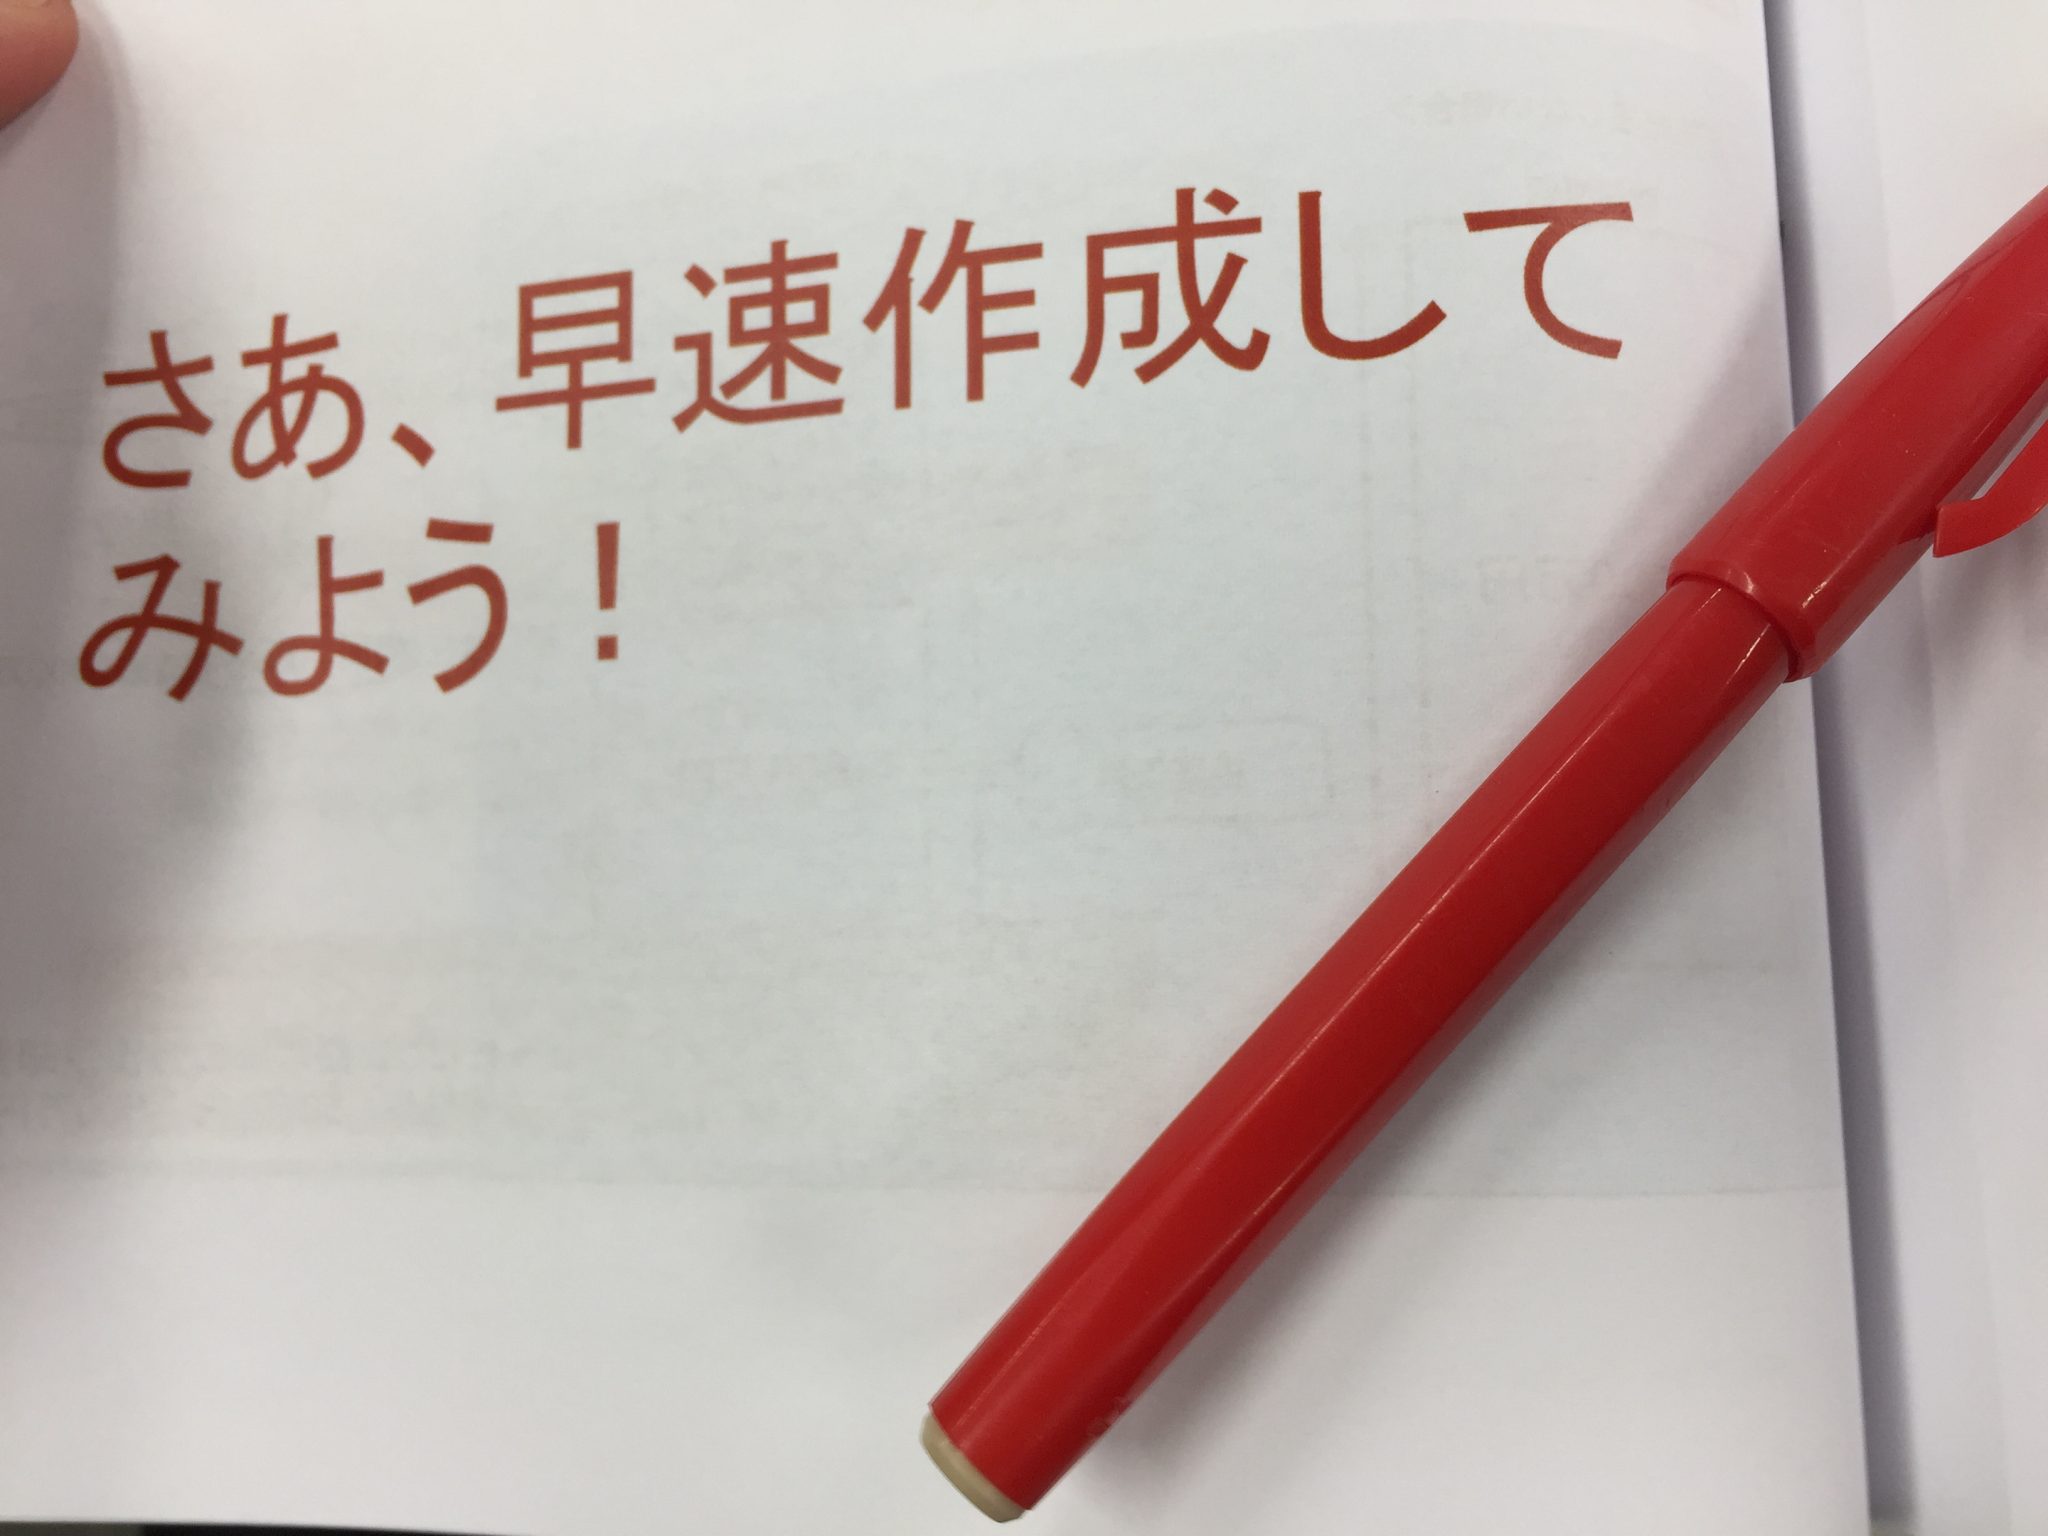 さあ、早速作成して
みよう！